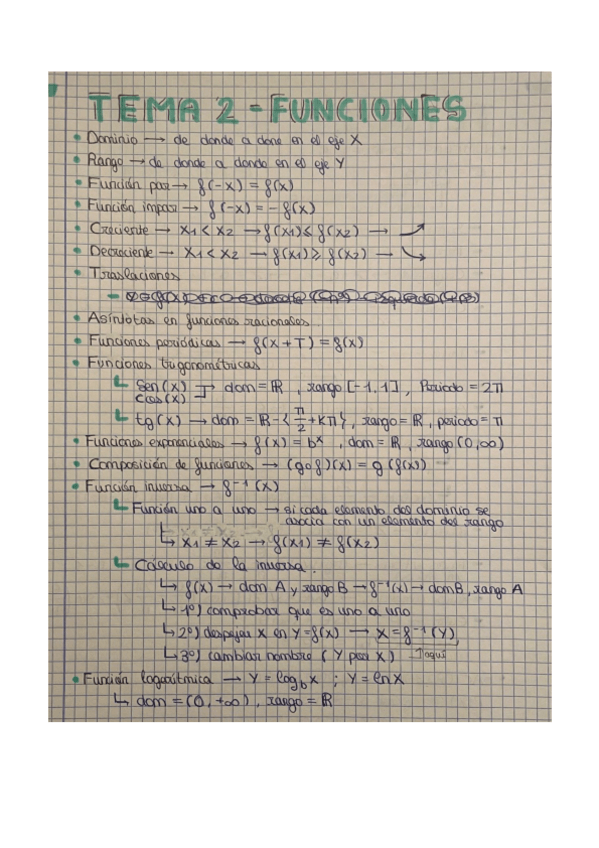 TEMA 2 - FUNCIONES
• Dominio → de donde a done en el eje X
• Rango → de donde a donde en el eje Y
• Función par → f(-x) = f(x)
• Función impar → f(-x) = - f(x)
• Creciente → x1 < x2 → f(x1) ≤ f(x2) →
• Decreciente → x1 < x2 → f(x1) ≥ f(x2) →
• Traslaciones
• Asíntotas en funciones racionales
• Funciones periódicas → f(x + T) = f(x)
• Funciones trigonométricas
Sen(x)
Cos(x) → dom = ℝ , rango [-1, 1] , Periodo = 2π
tg(x) → dom = ℝ - {π/2 + kπ} , rango = ℝ , periodo = π
• Funciones exponenciales → f(x) = bˣ , dom = ℝ , rango (0, ∞)
• Composición de funciones → (g∘f)(x) = g(f(x))
• Función inversa → f⁻¹(x)
Función uno a uno → si cada elemento del dominio se
asocia con un elemento del rango
↳ x1 ≠ x2 → f(x1) ≠ f(x2)
Cálculo de la inversa.
↳ f(x) → dom A y rango B → f⁻¹(x) → dom B, rango A
↳ 1º) comprobar que es uno a uno
↳ 2º) despejar x en y = f(x) → x = f⁻¹(y)
↳ 3º) cambiar nombre (y por x) ↑aquí
• Función logarítmica → y = log_b x ; y = ln x
↳ dom = (0, +∞) , rango = ℝ